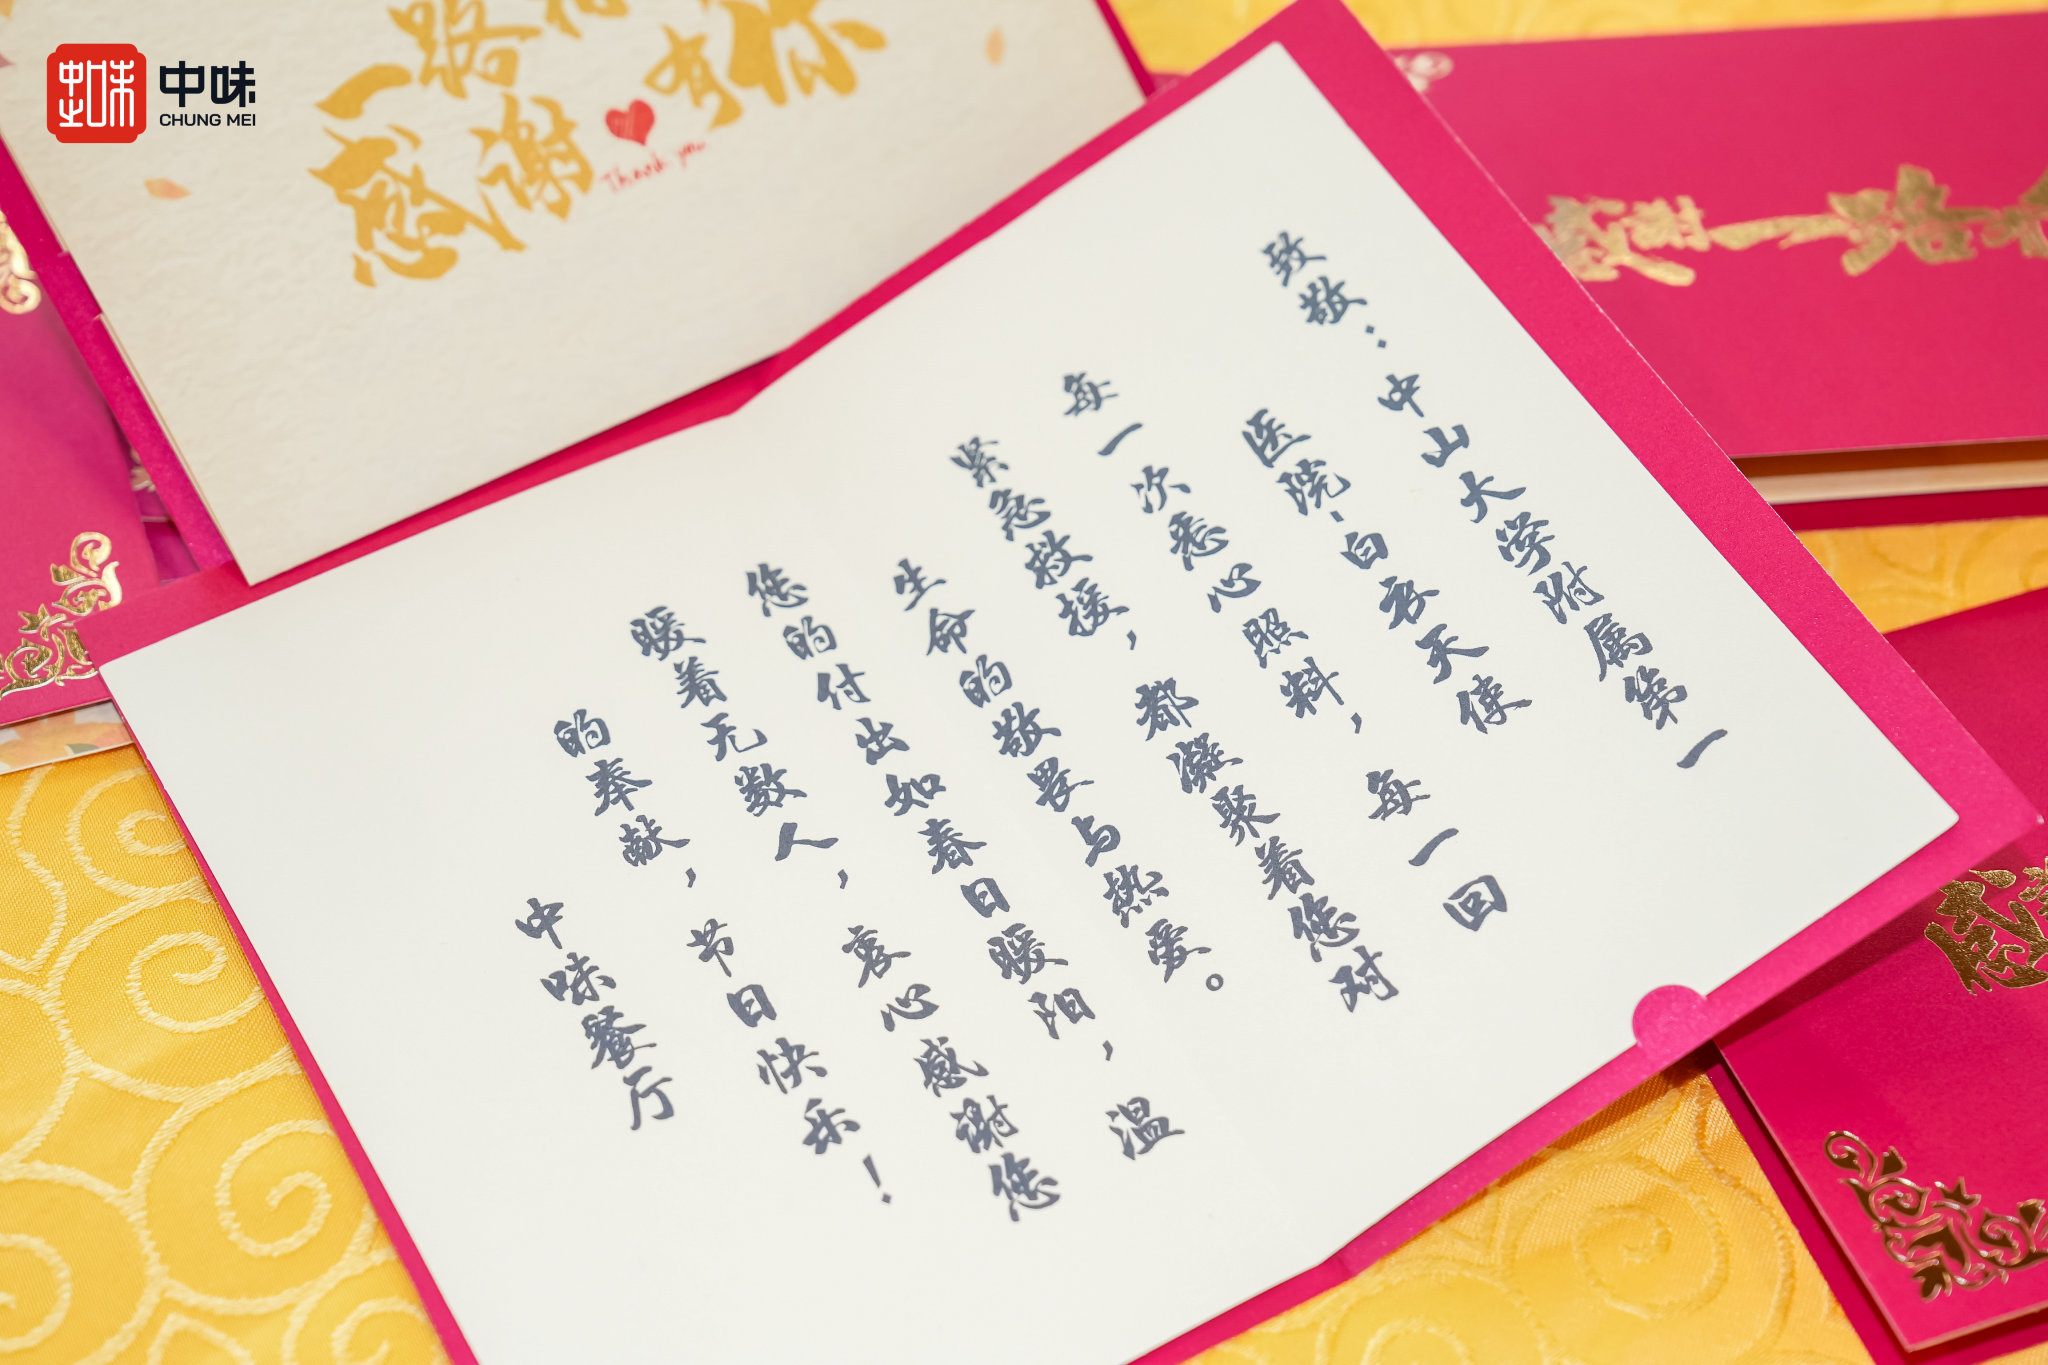 中味
中味
CHUNG MEI
一路
感谢 有你
Thank you
感谢一路
感
致敬：中山大学附属第一
医院-白衣天使
每一次悉心照料，每一回
紧急救援，都凝聚着您对
生命的敬畏与热爱。
您的付出如春日暖阳，温
暖着无数人，衷心感谢您
的奉献，节日快乐！
中味餐厅